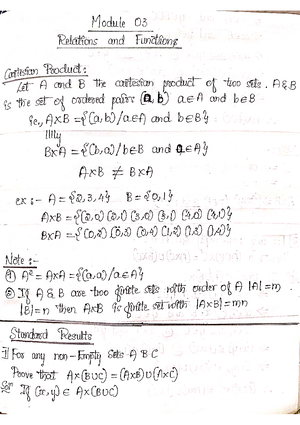 Module 03
Relations and Functions
Cartesian Product:
Let A and B the cartesian product of two sets. A&B
is the set of ordered pairs (a, b) a∈A and b∈B
ie., A×B = {(a,b)/a∈A and b∈B}
lllly
B×A = {(b,a)/b∈B and a∈A}
A×B ≠ B×A
ex:- A = {2,3,4} B = {0,1}
A×B = {(2,0) (2,1) (3,0) (3,1) (4,0) (4,1)}
B×A = {(0,2) (0,3) (0,4) (1,2) (1,3) (1,4)}
Note:-
① A² = A×A = {(a,a)/a∈A}
② If A & B are two finite sets with order of A |A|=m.
|B|=n then A×B is finite set with |A×B|=mn
Standard Results
1] For any non-Empty sets A B C
Prove that A×(B∪C) = (A×B)∪(A×C)
Soln If (x,y) ∈ A×(B∪C)